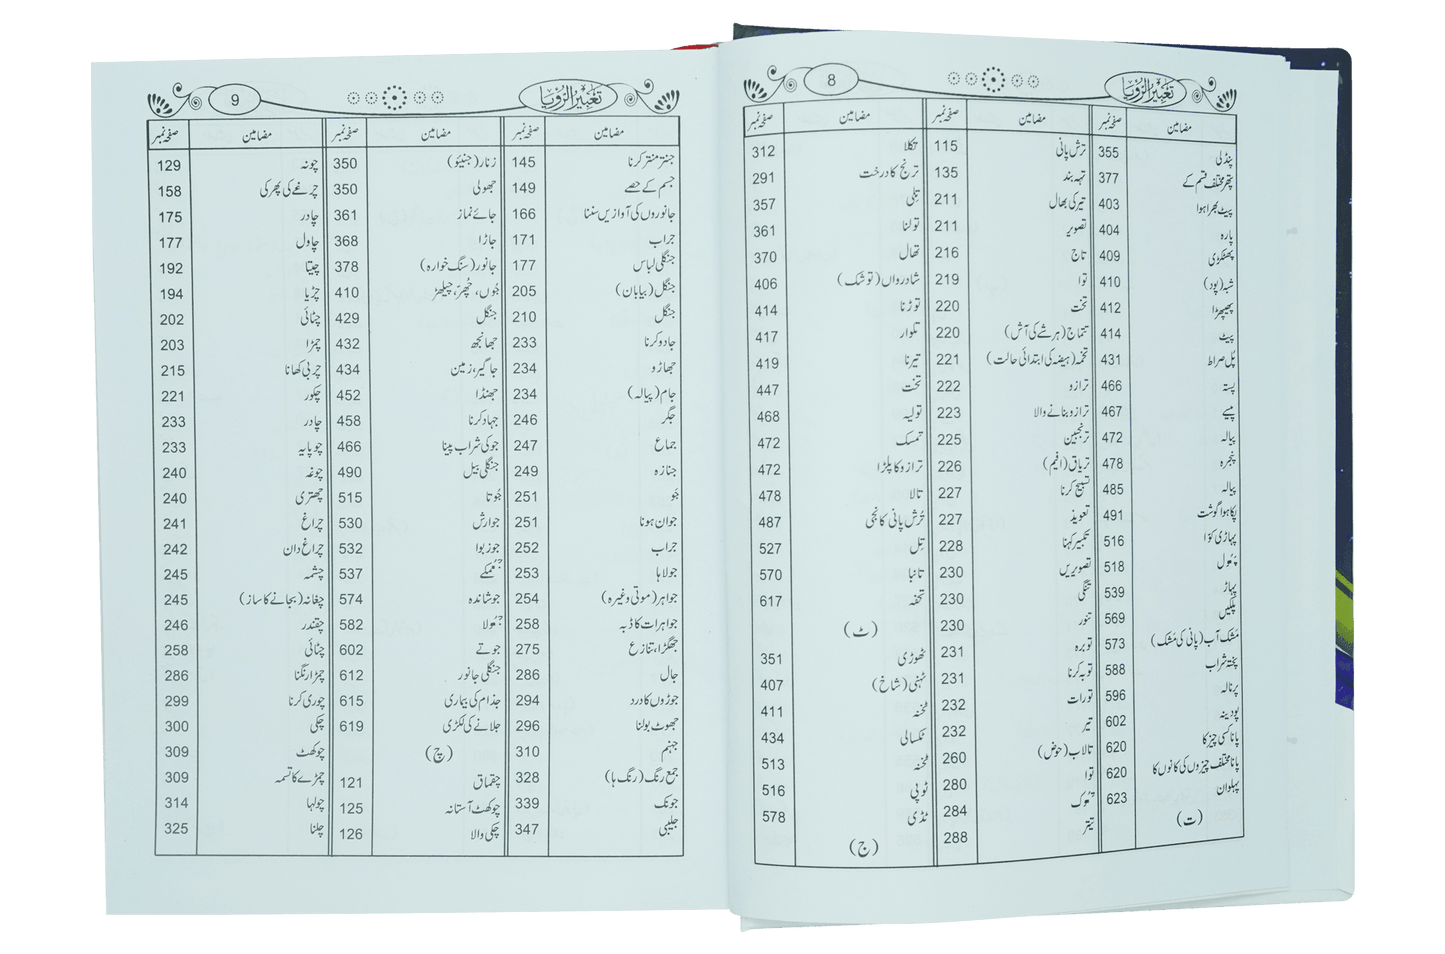 8
تعبیر الرؤیا
مضامین صفحہ نمبر
پنڈلی 355
پتھر مختلف قسم کے 377
پیٹ بھرا ہوا 403
پارہ 404
پھٹکڑی 409
شبہ (پود) 410
پھیپھڑا 412
پیٹ 414
پل صراط 431
پستہ 466
پیسے 467
پیالہ 472
پنجرہ 478
پیالہ 485
پکا ہوا گوشت 491
پہاڑی کوّا 516
پھول 518
پہاڑ 539
پلکیں 569
مشک آب (پانی کی مشک) 573
پختہ شراب 588
پرنالہ 596
پودینہ 602
پانا کسی چیز کا 620
پانا مختلف چیزوں کی کانوں کا 620
پہلوان 623
(ت)
مضامین صفحہ نمبر
ترش پانی 115
تہہ بند 135
تیر کی بھال 211
تصویر 211
تاج 216
توا 219
تخت 220
تتماج (ہر شے کی آش) 220
تخمہ (ہیضہ کی ابتدائی حالت) 221
ترازو 222
ترازو بنانے والا 223
ترنجبین 225
تریاق (افیم) 226
تسبیح کرنا 227
تعویذ 227
تکبیر کہنا 228
تصویریں 230
تنگی 230
تنور 230
توبرہ 231
توبہ کرنا 231
تورات 232
تیر 232
تالاب (حوض) 260
توا 280
تھوک 284
تیتر 288
مضامین صفحہ نمبر
تکلا 312
ترنج کا درخت 291
تلی 357
تولنا 361
تھال 370
شادرواں (توشک) 406
توڑنا 414
تلوار 417
تیرنا 419
تخت 447
تولیہ 468
تمسک 472
ترازو کا پلڑا 472
تالا 478
ترش پانی کانجی 487
تل 527
تانبا 570
تحفہ 617
(ٹ)
ٹھوڑی 351
ٹہنی (شاخ) 407
ٹخنہ 411
ٹکسالی 434
ٹخنہ 513
ٹوپی 516
ٹڈی 578
(ج)
9
تعبیر الرؤیا
مضامین صفحہ نمبر
جنتر منتر کرنا 145
جسم کے حصے 149
جانوروں کی آوازیں سننا 166
جراب 171
جنگلی لباس 177
جنگل (بیابان) 205
جنگل 210
جادو کرنا 233
جھاڑو 234
جام (پیالہ) 234
جگر 246
جماع 247
جنازہ 249
جو 251
جوان ہونا 251
جراب 252
جولاہا 253
جواہر (موتی وغیرہ) 254
جواہرات کا ڈبہ 258
جھگڑا، تنازع 275
جال 286
جوڑوں کا درد 294
جھوٹ بولنا 296
جہنم 310
جمع رنگ (رنگ ہا) 328
جونک 339
جلیبی 347
مضامین صفحہ نمبر
زنار (جنیئو) 350
جھولی 350
جائے نماز 361
جاڑا 368
جانور (سنگ خوارہ) 378
جوں، چھر، چیلھڑ 410
جنگل 429
جھانجھ 432
جاگیر، زمین 434
جھنڈا 452
جہاد کرنا 458
جو کی شراب پینا 466
جنگلی بیل 490
جوتا 515
جوارش 530
جوز بوا 532
جھمکے 537
جوشاندہ 574
جھولا 582
جوتے 602
جنگلی جانور 612
جذام کی بیماری 615
جلانے کی لکڑی 619
(چ)
چقماق 121
چوکھٹ آستانہ 125
چکی والا 126
مضامین صفحہ نمبر
چونہ 129
چرغے کی پھرکی 158
چادر 175
چاول 177
چیتا 192
چڑیا 194
چٹائی 202
چمڑا 203
چربی کھانا 215
چکور 221
چادر 233
چوپایہ 233
چوغہ 240
چھتری 240
چراغ 241
چراغ دان 242
چشمہ 245
چغانہ (بجانے کا ساز) 245
چقندر 246
چٹائی 258
چمڑا رنگنا 286
چوری کرنا 299
چکی 300
چوکھٹ 309
چمڑے کا تسمہ 309
چولہا 314
چلنا 325